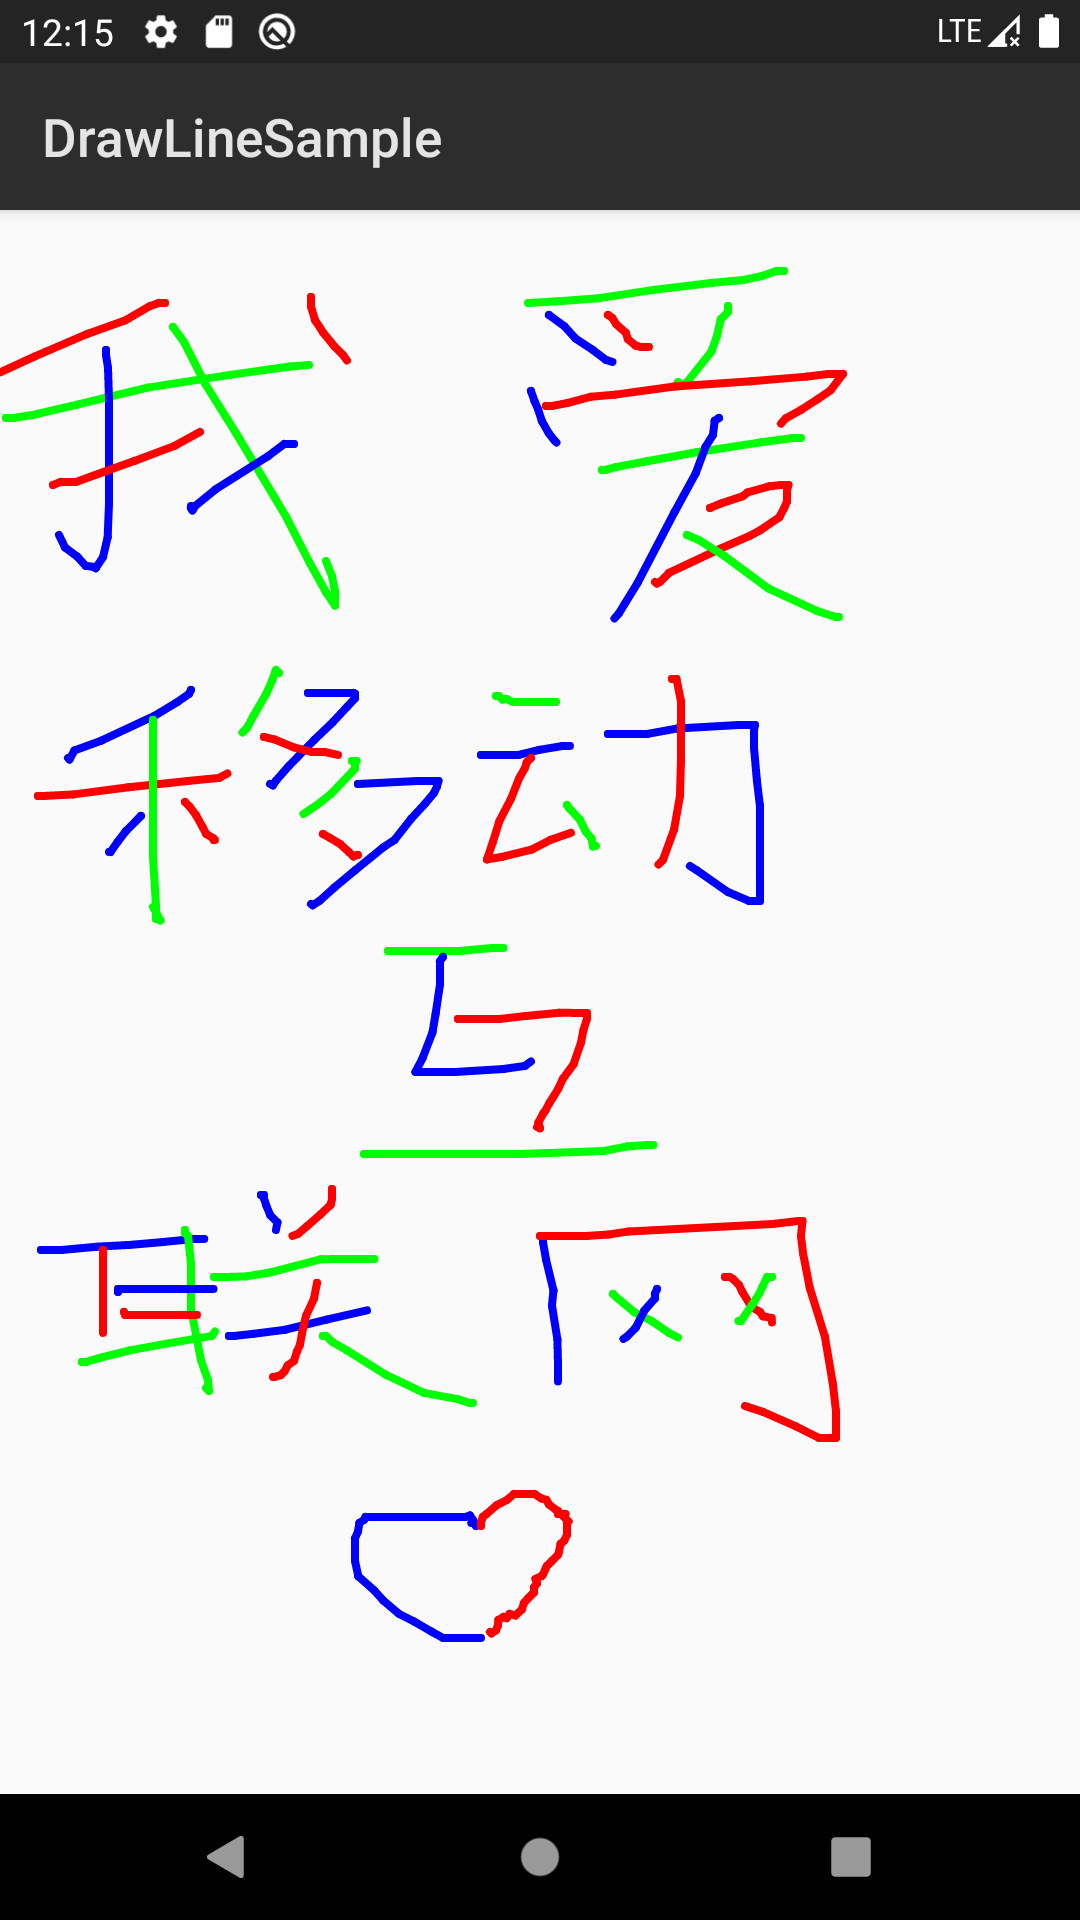 12:15 LTE
DrawLineSample
我爱
移动
互
联网